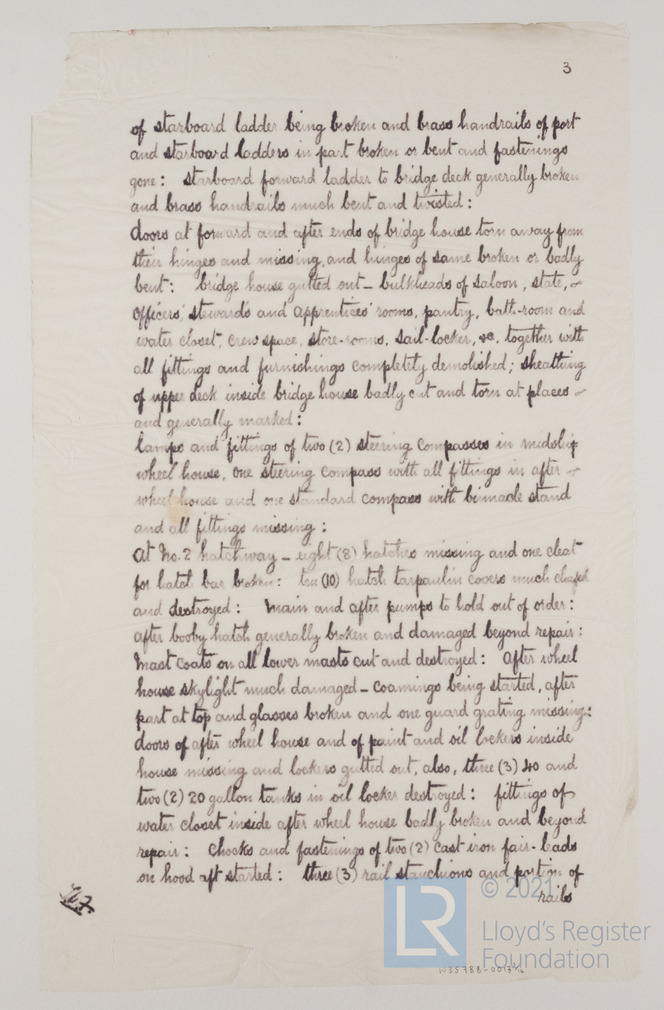 3
of starboard ladder being broken and brass handrails of port
and starboard ladders in part broken or bent and fastenings
gone: starboard forward ladder to bridge deck generally broken
and brass handrails much bent and twisted:
doors at forward and after ends of bridge house torn away from
their hinges and missing, and hinges of same broken or badly
bent: bridge house gutted out - bulkheads of saloon, state,
officers', steward's and apprentices' rooms, pantry, bath-room and
water closet, crew space, store-rooms, sail-locker, &c. together with
all fittings and furnishings completely demolished; sheathing
of upper deck inside bridge house badly cut and torn at places
and generally marked:
lamps and fittings of two (2) steering compasses in midship
wheel house, one steering compass with all fittings in after
wheel house and one standard compass with binnacle stand
and all fittings missing:
At No. 2 hatchway - eight (8) hatches missing and one cleat
for hatch bar broken: ten (10) hatch tarpaulin covers much chafed
and destroyed: Main and after pumps to hold out of order:
after booby hatch generally broken and damaged beyond repair:
Mast coats on all lower masts cut and destroyed: After wheel
house skylight much damaged - coamings being started, after
part at top and glasses broken and one guard grating missing:
doors of after wheel house and of paint and oil lockers inside
house missing and lockers gutted out, also, three (3) 40 and
two (2) 20 gallon tanks in oil locker destroyed: fittings of
water closet inside after wheel house badly broken and beyond
repair: Chocks and fastenings of two (2) cast iron fair-leads
on hood aft started: three (3) rail stanchions and portion of
rails
LR
© 2021
Lloyd's Register
Foundation